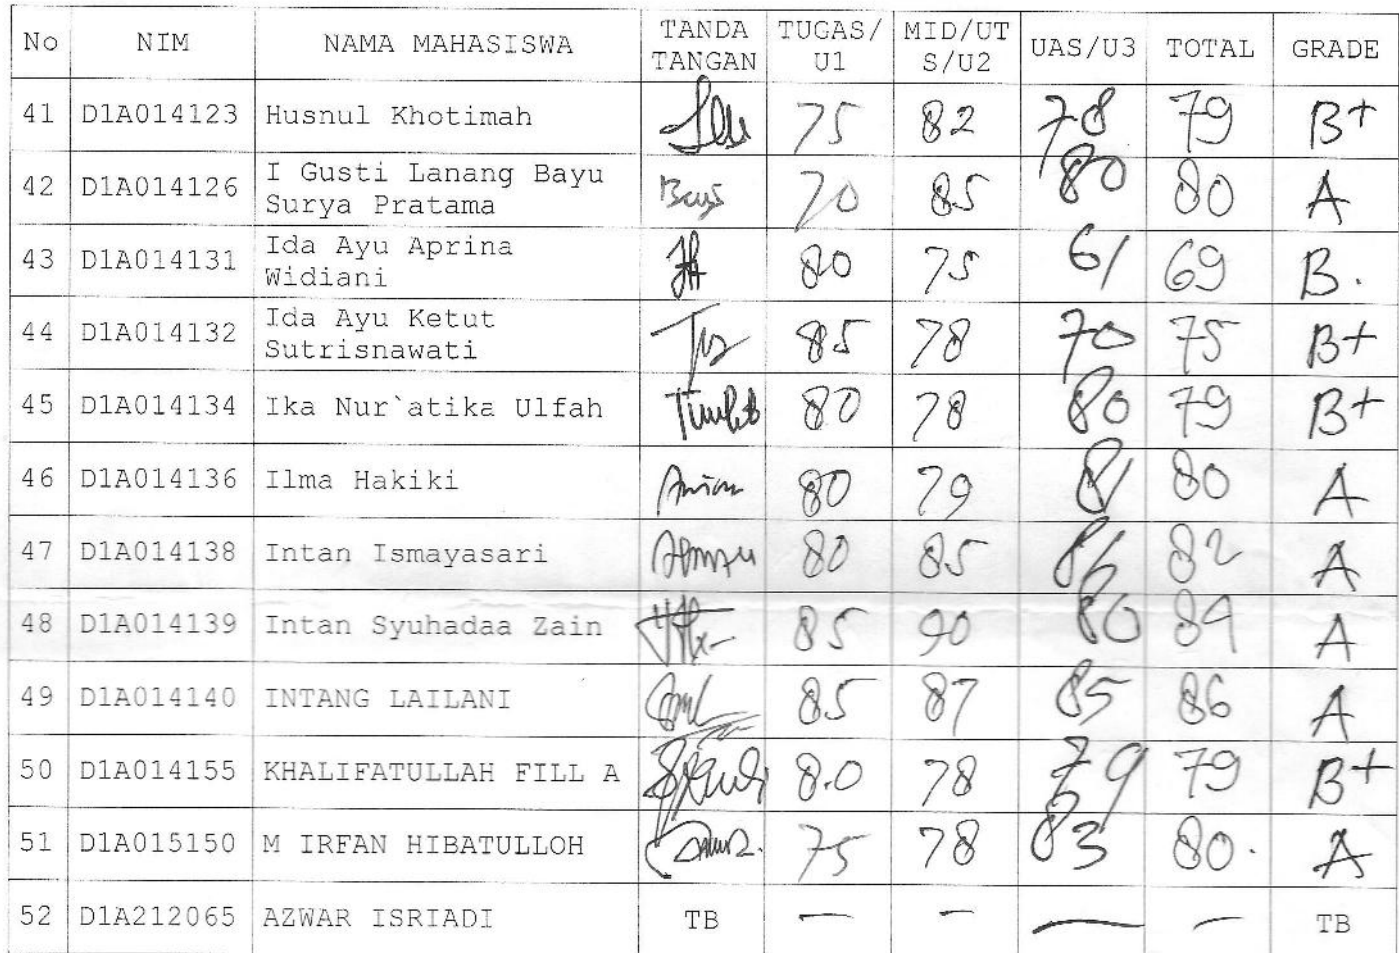 No NIM NAMA MAHASISWA TANDA TANGAN TUGAS/U1 MID/UTS/U2 UAS/U3 TOTAL GRADE
41 D1A014123 Husnul Khotimah 75 82 78 79 B+
42 D1A014126 I Gusti Lanang Bayu Surya Pratama 70 85 80 80 A
43 D1A014131 Ida Ayu Aprina Widiani 80 75 61 69 B.
44 D1A014132 Ida Ayu Ketut Sutrisnawati 85 78 70 75 B+
45 D1A014134 Ika Nur`atika Ulfah 80 78 80 79 B+
46 D1A014136 Ilma Hakiki 80 79 81 80 A
47 D1A014138 Intan Ismayasari 80 85 86 82 A
48 D1A014139 Intan Syuhadaa Zain 85 90 80 84 A
49 D1A014140 INTANG LAILANI 85 87 85 86 A
50 D1A014155 KHALIFATULLAH FILL A 8.0 78 79 79 B+
51 D1A015150 M IRFAN HIBATULLOH 75 78 83 80. A
52 D1A212065 AZWAR ISRIADI TB — — — — TB